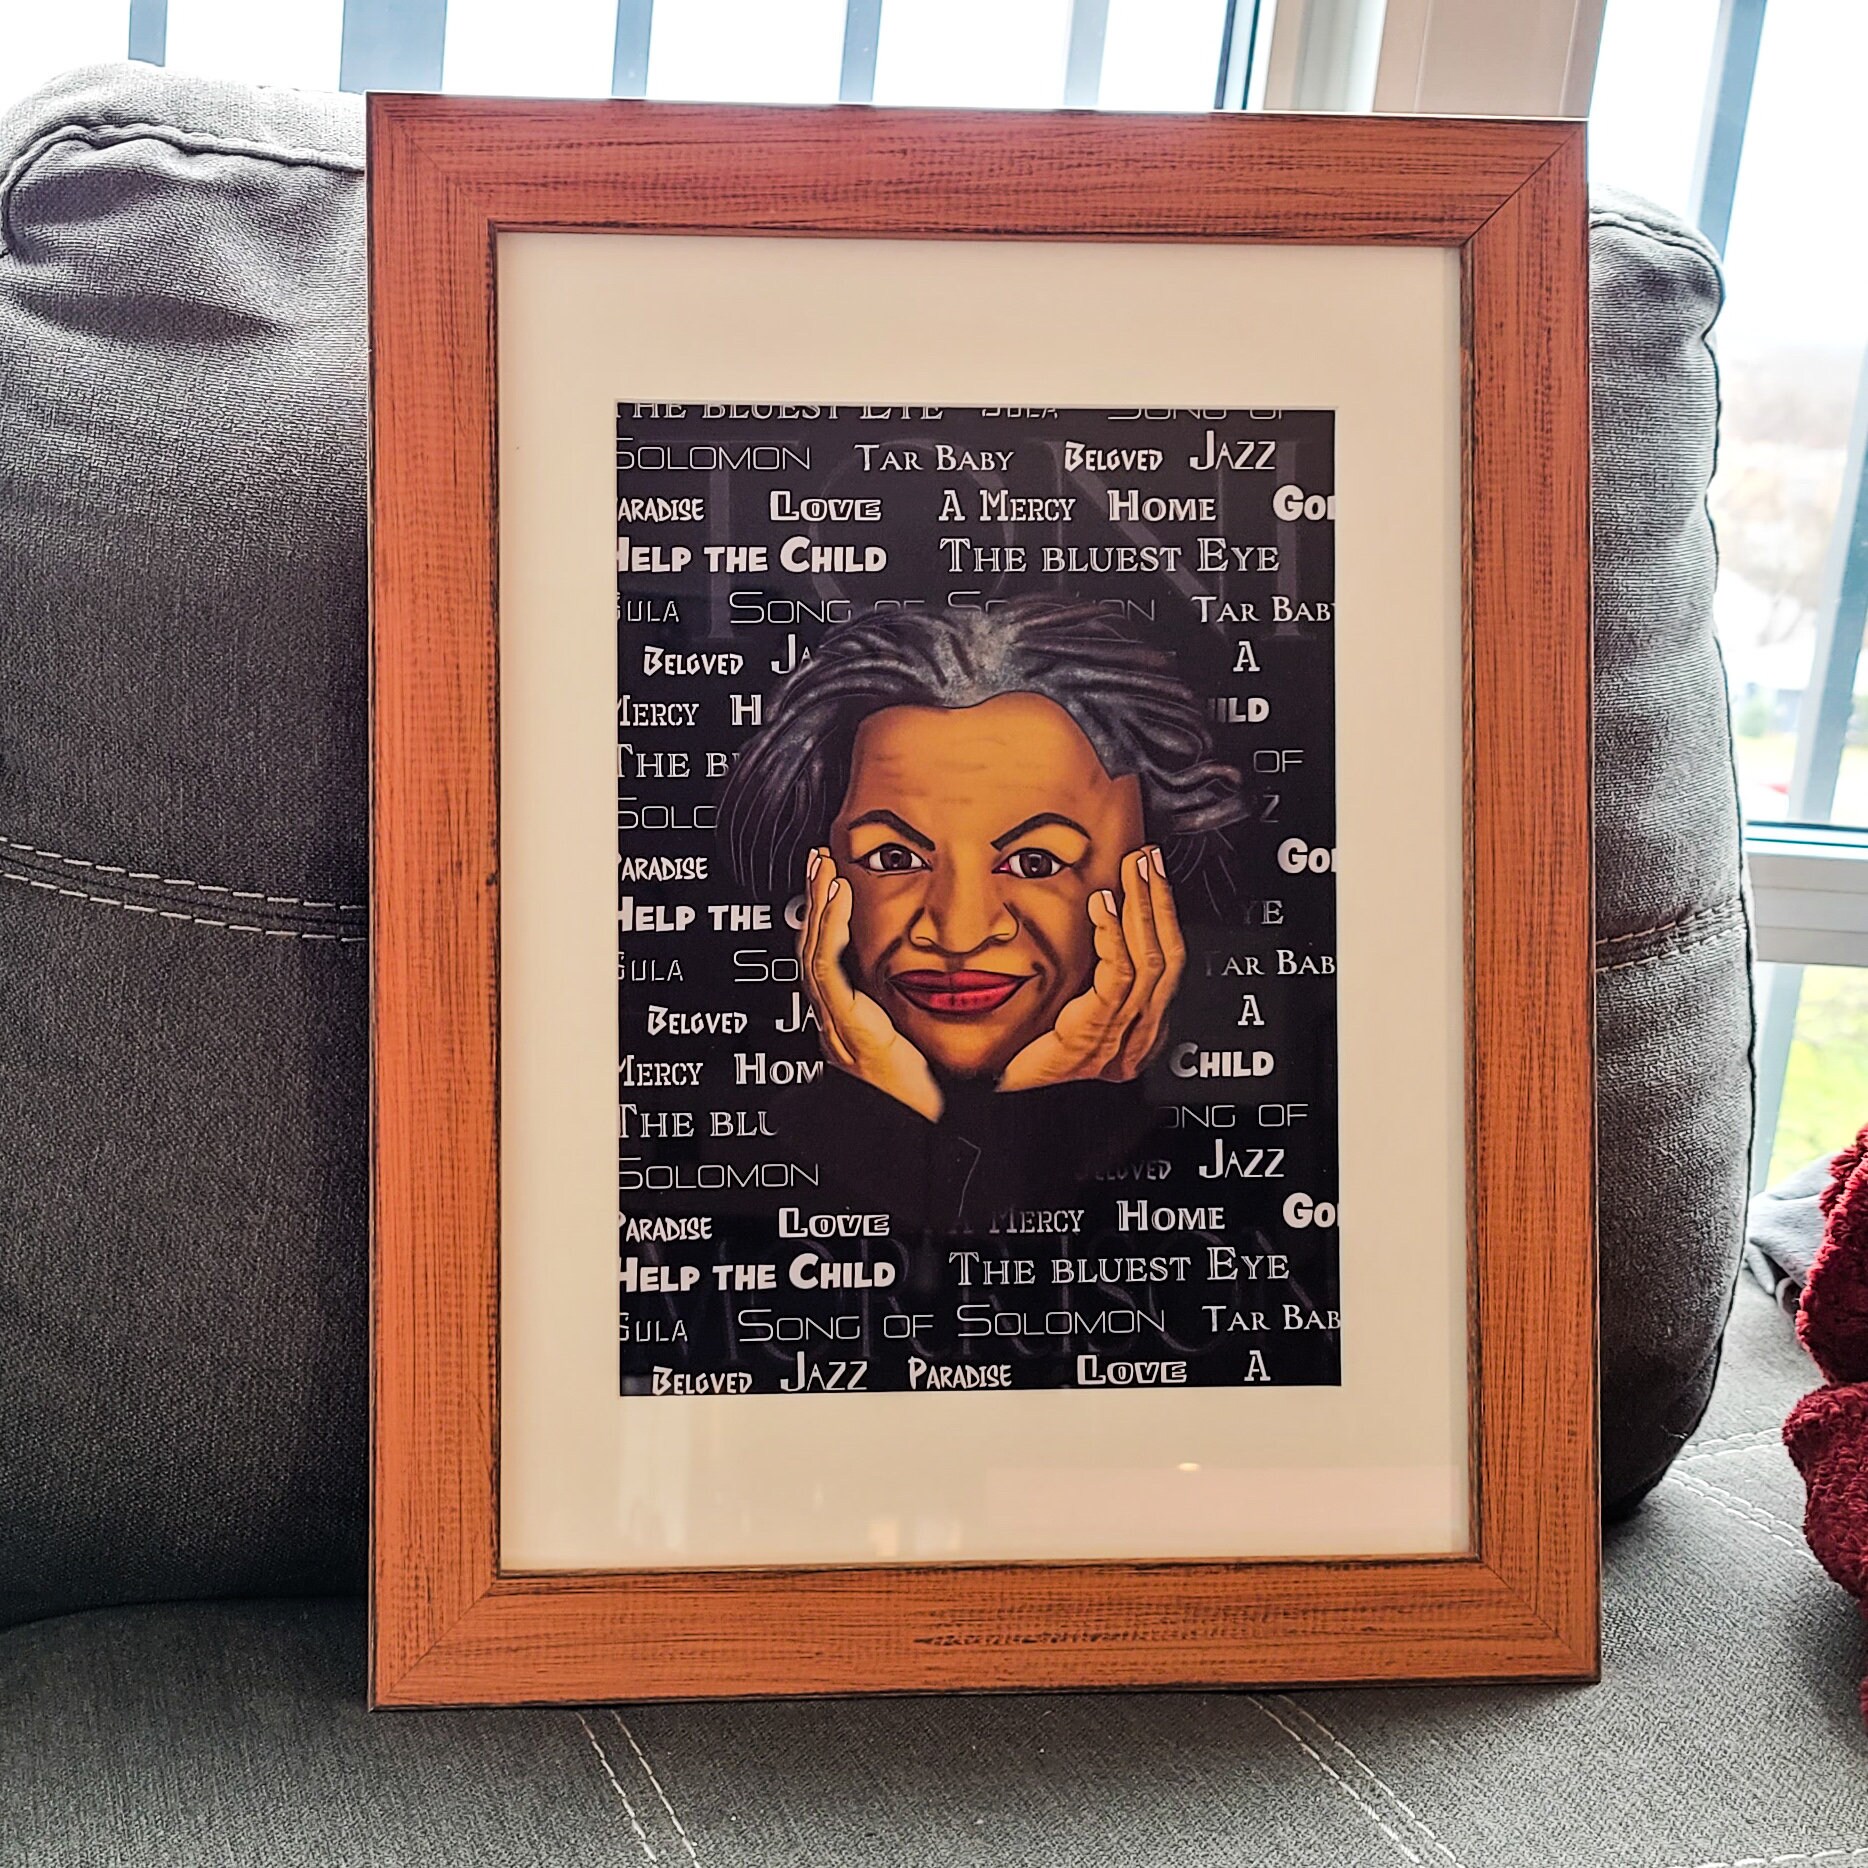 THE BLUEST EYE SULA SONG OF
SOLOMON TAR BABY BELOVED JAZZ
TONI
ARADISE LOVE A MERCY HOME GO
HELP THE CHILD THE BLUEST EYE
SULA SONG OF SOLOMON TAR BAB
BELOVED JA A
MERCY H ILD
THE B OF
SOLO Z
PARADISE GO
HELP THE C YE
SULA SO TAR BAB
BELOVED JA A
MERCY HOM CHILD
THE BLU ONG OF
SOLOMON BELOVED JAZZ
PARADISE LOVE A MERCY HOME GO
MORRISON
HELP THE CHILD THE BLUEST EYE
SULA SONG OF SOLOMON TAR BAB
BELOVED JAZZ PARADISE LOVE A